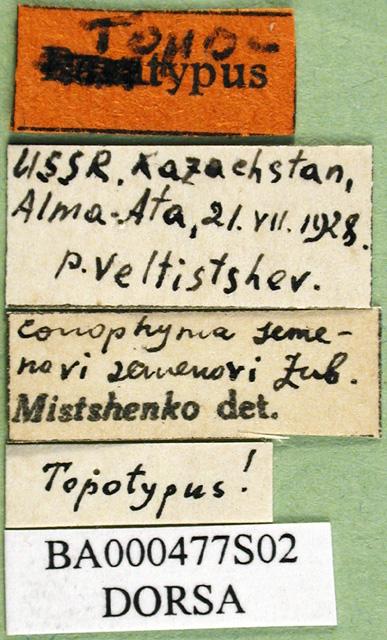 Topo-
typus
USSR, Kazachstan,
Alma-Ata, 21.VII.1928.
P. Veltistshev.
Conophyma seme-
novi semenovi Zub.
Mistshenko det.
Topotypus!
BA000477S02
DORSA